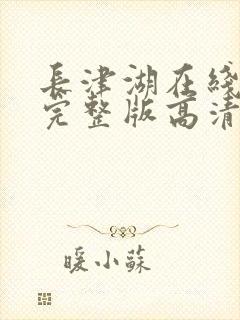 長津湖在綫
完整版高清
暖小蘇